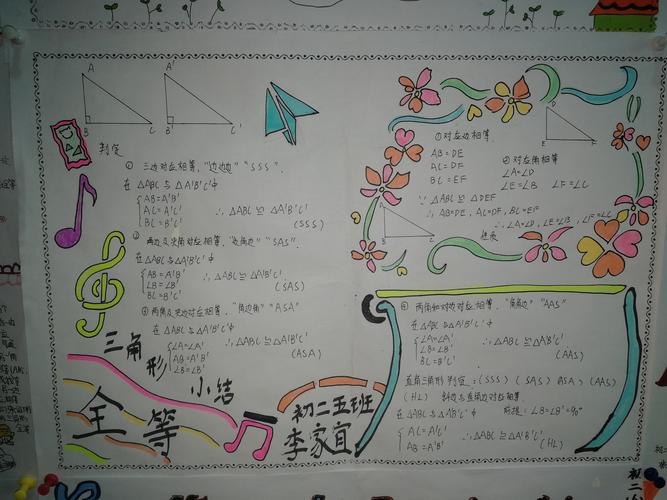 A
B
C
A'
B'
C'
判定
① 三边对应相等，"边边边" "SSS".
在△ABC与△A'B'C'中
AB=A'B'
AC=A'C'
BC=B'C'
∴△ABC≌△A'B'C'
(SSS)
② 两边及夹角对应相等，"边角边" "SAS".
在△ABC与△A'B'C'中
AB=A'B'
∠B=∠B'
BC=B'C'
∴△ABC≌△A'B'C'
(SAS)
③ 两角及夹边对应相等，"角边角" "ASA"
在△ABC与△A'B'C'中
∠A=∠A'
AB=A'B'
∠B=∠B'
∴△ABC≌△A'B'C'
(ASA)
三角形
小结
全等
初二五班
李家宜
① 对应边相等
AB=DE
AC=DF
BC=EF
② 对应角相等
∠A=∠D
∠E=∠B ∠F=∠C
∵△ABC≌△DEF
∴AB=DE, AC=DF, BC=EF
∴∠A=∠D, ∠E=∠B, ∠F=∠C
性质
D
E
F
A
B
C
④ 两角和对边对应相等，"角角边" "AAS"
在△ABC与△A'B'C'中
∠A=∠A'
∠B=∠B'
BC=B'C'
∴△ABC≌△A'B'C'
(AAS)
直角三角形判定：(SSS) (SAS) ASA) (AAS)
(HL) 斜边与直角边对应相等
在△ABC与△A'B'C'中
∠B=∠B'=90°
AC=A'C'
AB=A'B'
∴△ABC≌△A'B'C'
(HL)